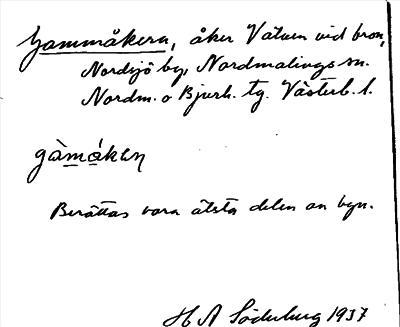 Gammåkern, åker Våtuen vid bron,
Nordsjö by, Nordmalings sn.
Nordm. o Bjurh. tg. Västerb. l.
gàmákeṇ
Berättas vara älsta delen av byn.
H A Söderberg 1937